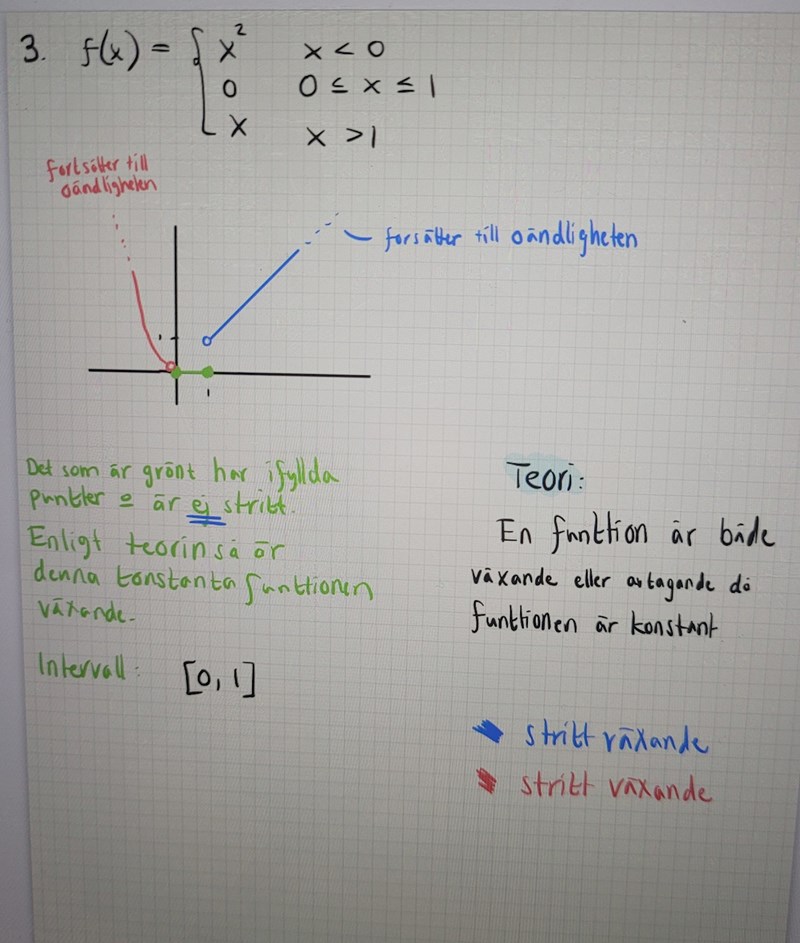 3. f(x) = { x² x < 0
0 0 ≤ x ≤ 1
x x > 1
fortsätter till
oändligheten
forsätter till oändligheten
1
1
Det som är grönt har ifyllda
punkter o är ej strikt.
Enligt teorin så är
denna konstanta funktionen
växande.
Intervall: [0, 1]
Teori:
En funktion är både
växande eller avtagande då
funktionen är konstant
strikt växande
strikt växande